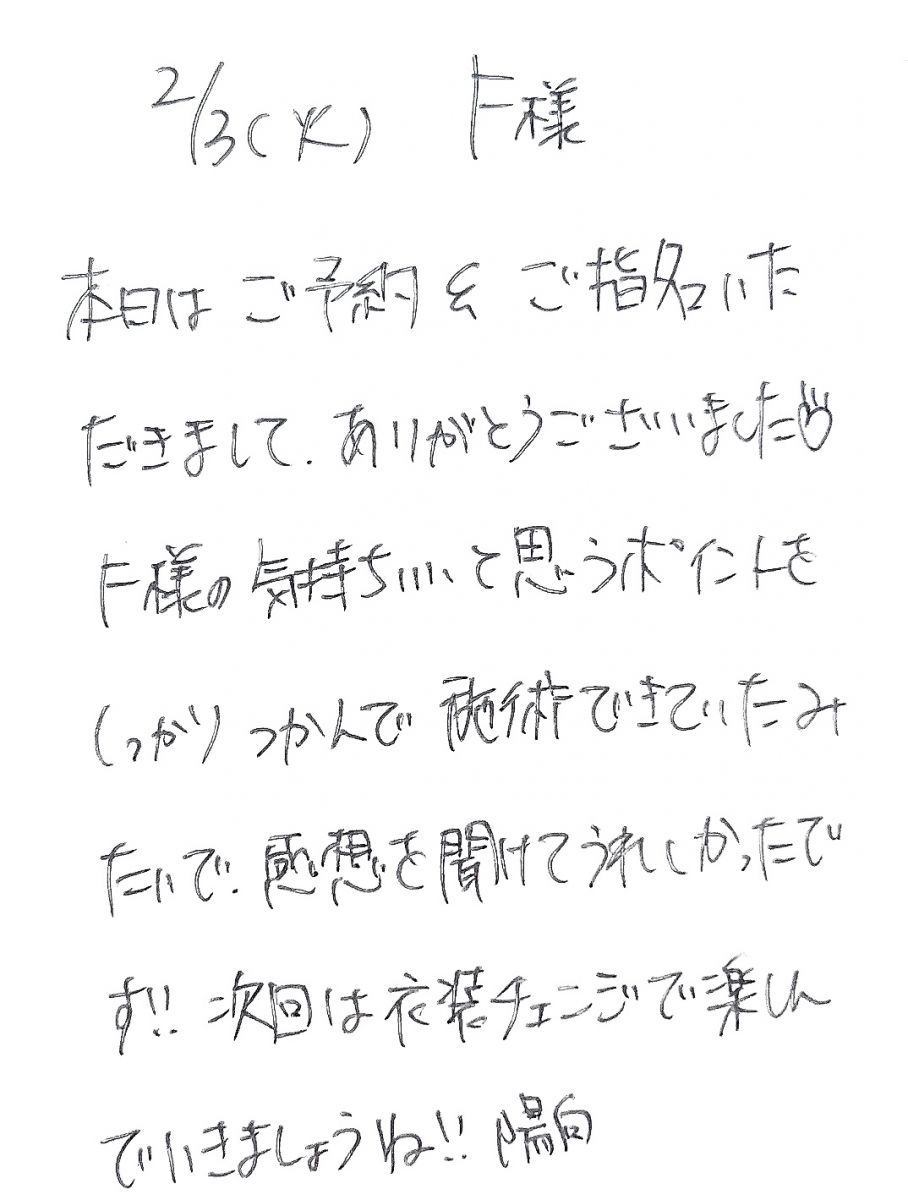 2/3(火) F様
本日はご予約&ご指名いた
だきまして、ありがとうございました♡
F様の気持ちいいと思うポイントを
しっかりつかんで施術できていたみ
たいで、感想を聞けてうれしかったで
す!! 次回は衣装チェンジで楽しん
でいきましょうね!! 陽向